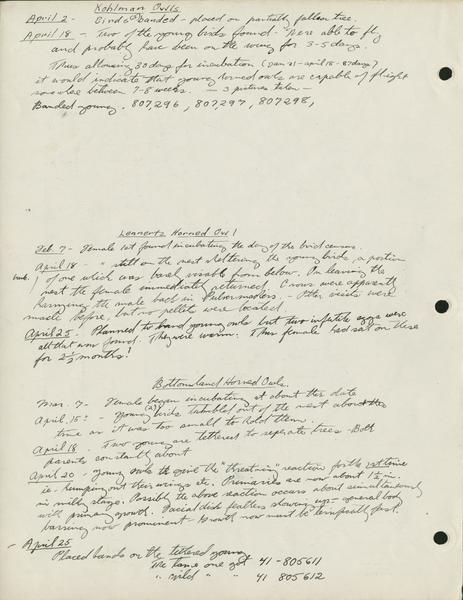 Kohlman Owls
April 2 - Birds Banded - placed on partially fallen tree.
April 18 - Two of the young birds found - Were able to fly
and probably have been on the wing for 3-5 days.
Thus allowing 30 days for incubation (Jan 21 - april 18 - 87 days)
it would indicate that young horned owls are capable of flight
somewhere between 7-8 weeks. - 3 pictures taken -
Banded young. 807,296, 807,297, 807298,
Lennertz Horned Owl
Feb. 7 - Female 1st found incubating the day of the bird census.
April 18 - " still on the nest sheltering the young birds, a portion
of one which was barely visable from below. On leaving the
nest the female immediately returned. Crows were apparently
harrying the male back in - Other visits were
made before, but no pellets were located
April 25. Planned to band young owls but two infertile eggs were
all that was found. They were warm. This female had sat on these
for 2½ months!
Bottomland Horned Owls.
Mar. 7 - Female began incubating at about this date
April 15 - Young (2) birds tumbled out of the nest about this
time as it was too small to hold them.
April 18. Two young are tethered to seperate trees - Both
parents constantly about
April 20 - young owls to give the "threatning" reaction for the 1st time
ie. humping out their wings etc. Primaries are now about 1½ in.
in milky stage. Possibly the above reaction occurs about simultaneously
with primary growth. Facial disk feathers showing up - general body
barring now prominent - Growth now must be terrifically fast.
April 25
Placed bands on the tethered young
The tame one got 41-805611
" wild " " 41 805612